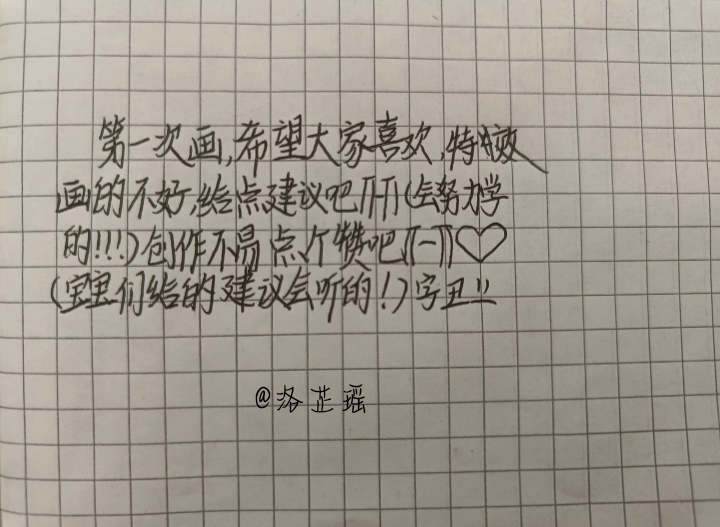 第一次画,希望大家喜欢,特效
画的不好,给点建议吧TT-TT(会努力学
的!!!)创作不易点个赞吧TT-TT♡
(宝宝们给的建议会听的!)字丑!!
@洛芷瑶